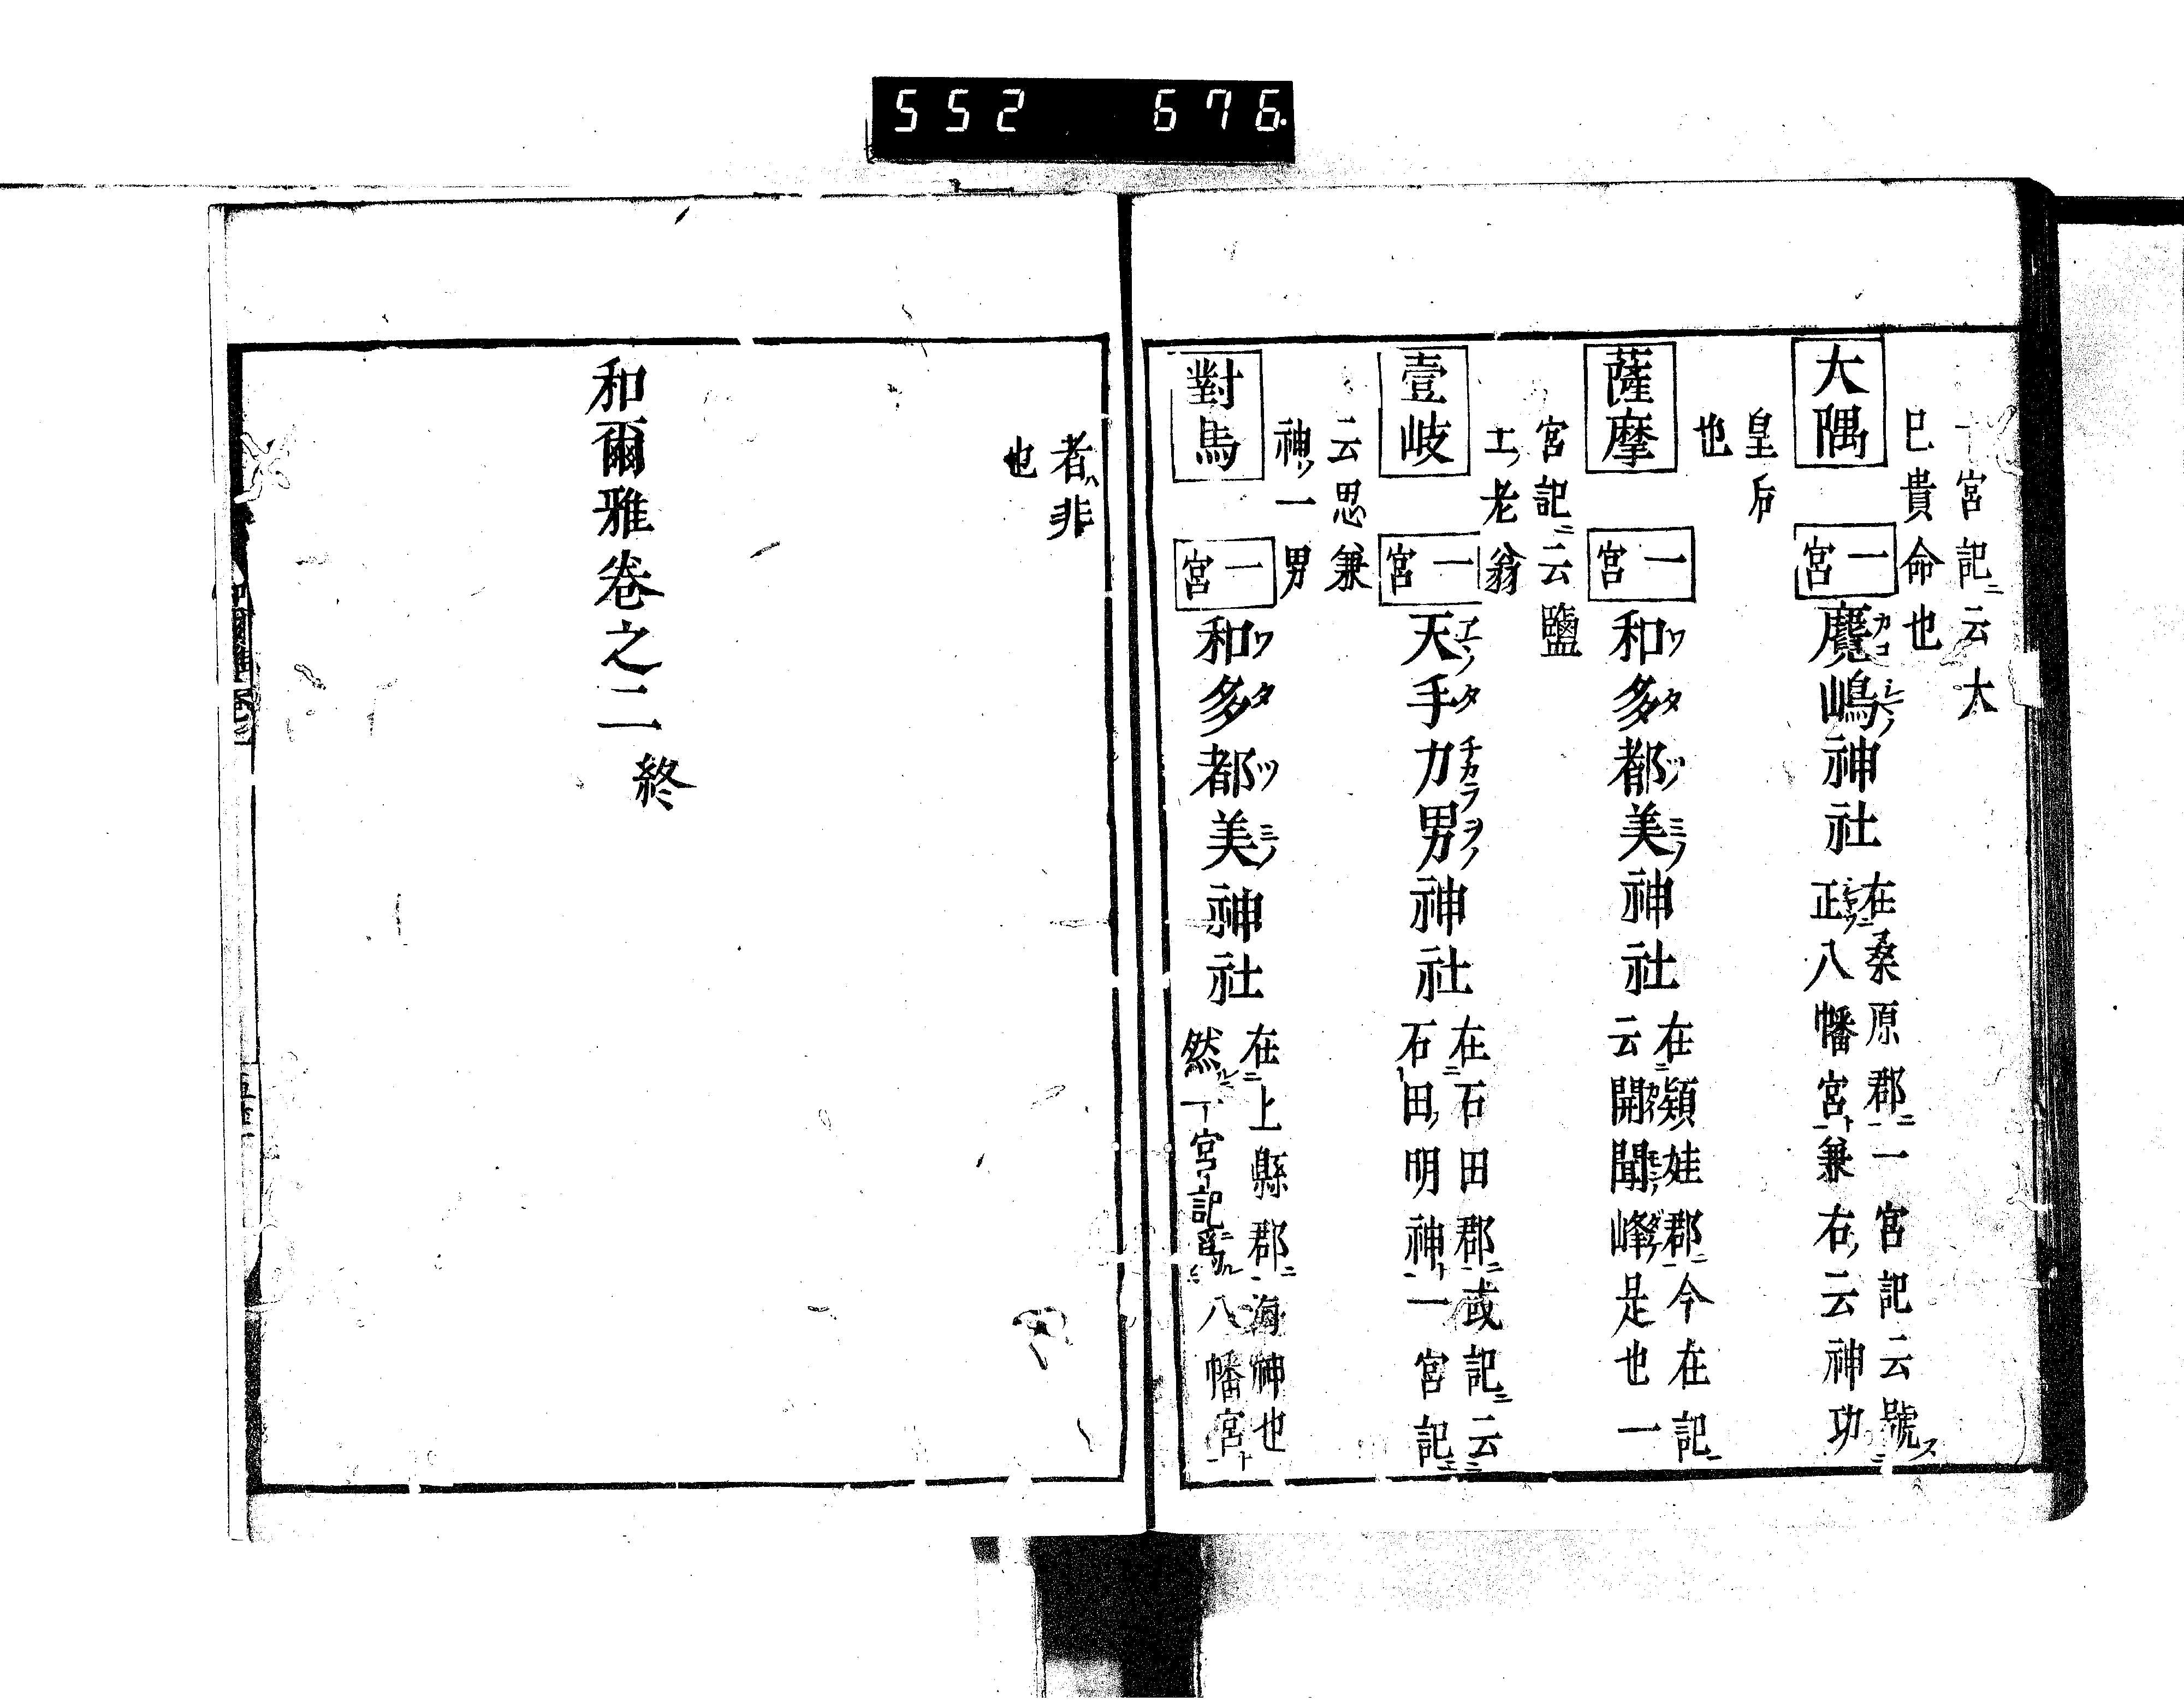 552 676
一宮記云大
巳貴命也
大隅 一宮 麑嶋神社 在桑原郡一宮記云號
正八幡宮兼右云神功
皇后
也
薩摩 一宮 和多都美神社 在頴娃郡今在記
云開聞峰是也一
宮記云鹽
土老翁
壹岐 一宮 天手力男神社 在石田郡或記云
石田明神一宮記
云思兼
神一男
對馬 一宮 和多都美神社 在上縣郡海神也
然一宮記爲八幡宮
者非
也
和爾雅卷之二終